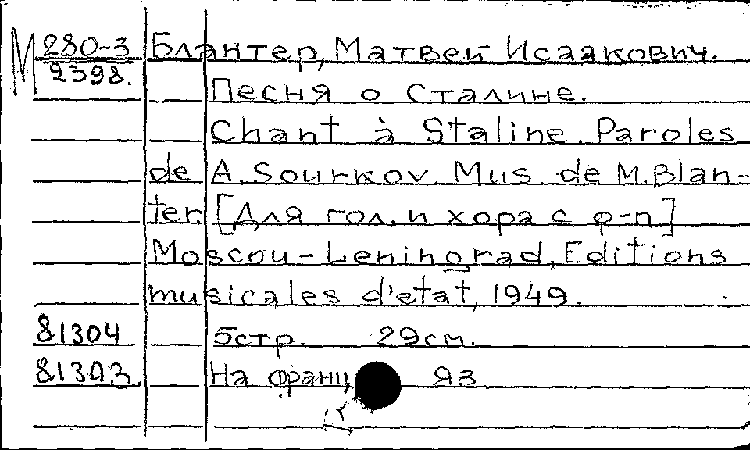 М 280-3 Блантер, Матвей Исаакович.
2398.
Песня о Сталине.
Chant à Staline. Paroles
de A. Sourkov. Mus. de M. Blan-
ter. [Для гол. и хора с ф-п]
Moscou-Leningrad, Editions
musicales d'etat, 1949.
81304 5стр. 29см.
81303 На франц яз